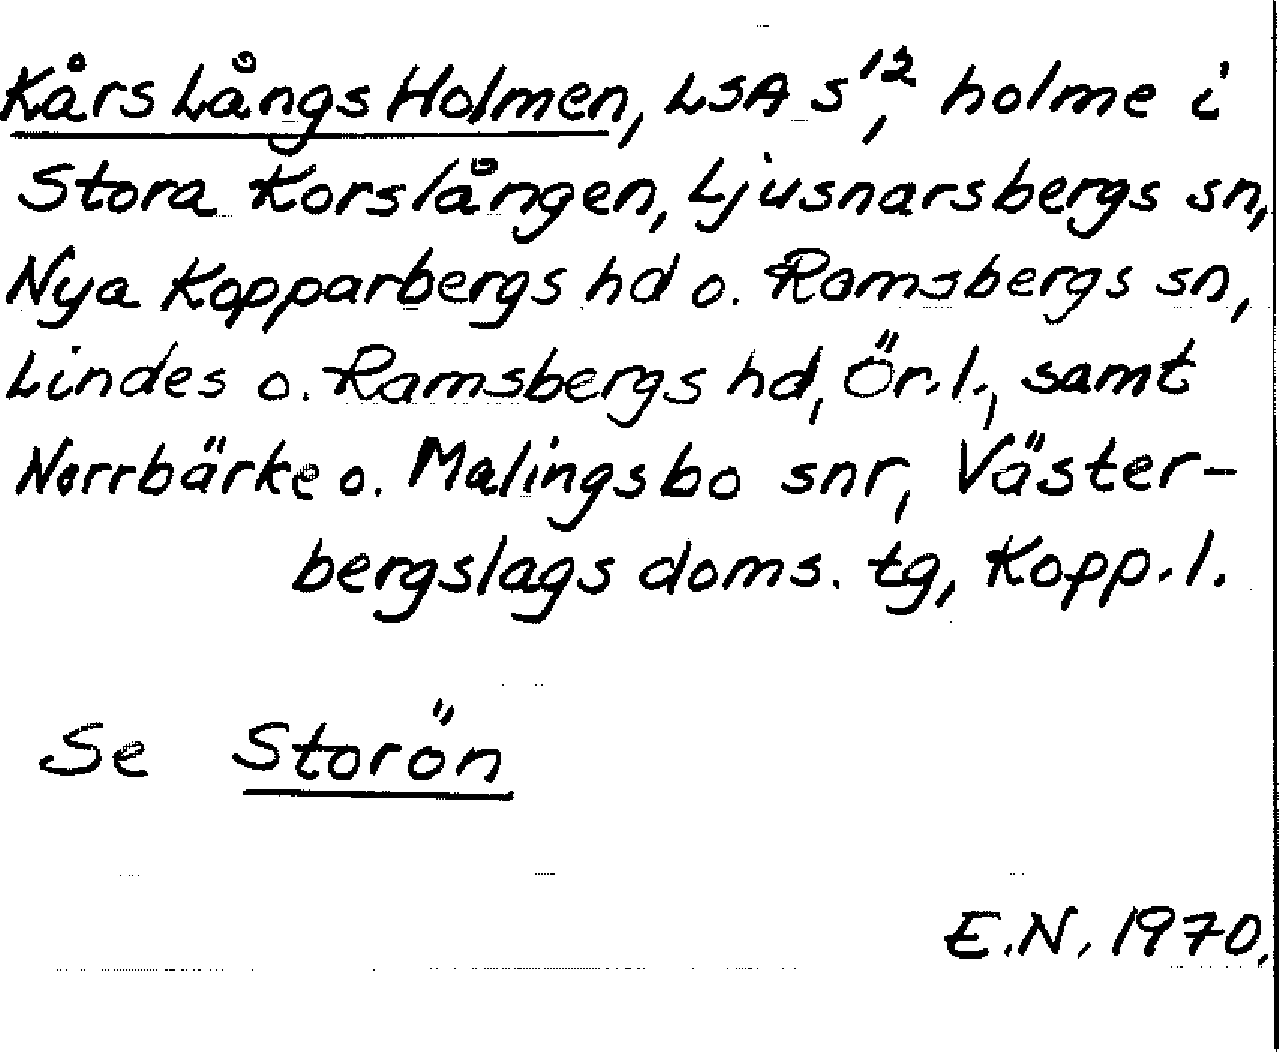 Kårs Långs Holmen, LSA S¹², holme i
Stora Korslången, Ljusnarsbergs sn,
Nya Kopparbergs hd o. Ramsbergs sn,
Lindes o. Ramsbergs hd, Ör.l., samt
Norrbärke o. Malingsbo snr, Väster-
bergslags doms. tg, Kopp.l.
Se Storön
E.N. 1970.